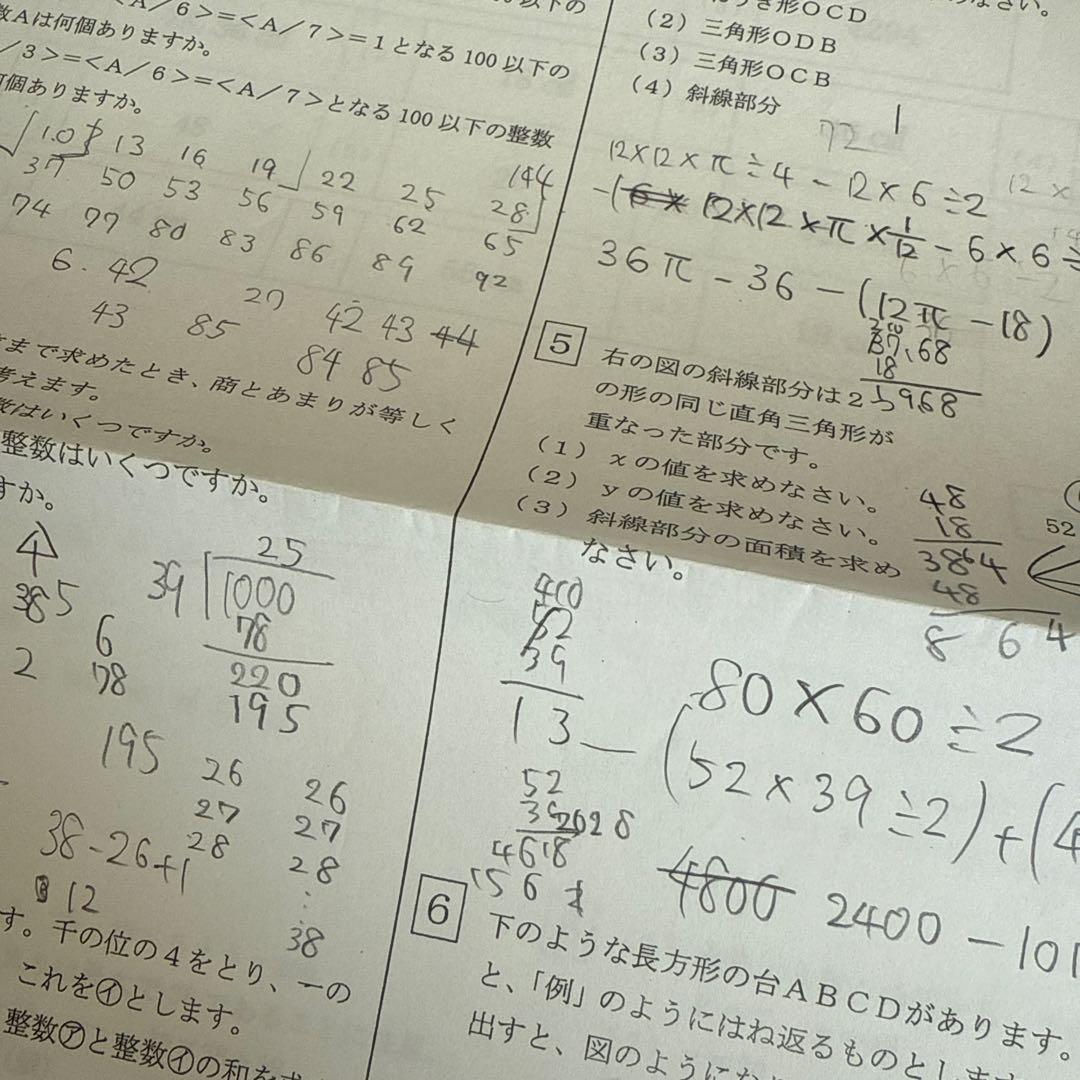 <A/6>=<A/7>=1となる100以下の
数Aは何個ありますか。
/3>=<A/6>=<A/7>となる100以下の整数
何個ありますか。
10 13 16 19 22 25 28
144
37 50 53 56 59 62 65
74 77 80 83 86 89 92
6.42
43 85
27 42 43 44
84 85
まで求めたとき、商とあまりが等しく
考えます。
数はいくつですか。
整数はいくつですか。
すか。
4
385
2
6
78
25
39 1000
78
220
195
195
26 26
27 27
28 28
38
38-26+1
12
す。千の位の4をとり、一の
これを㋑とします。
整数㋐と整数㋑の和を
形OCD
(2) 三角形ODB
(3) 三角形OCB
(4) 斜線部分
72
12×12×π÷4-12×6÷2
12×
-(6× 12×12×π×1/12-6×6÷
36π-36-(12π-18)
37.68
18
5968
5 右の図の斜線部分は2
の形の同じ直角三角形が
重なった部分です。
(1) xの値を求めなさい。
(2) yの値を求めなさい。
(3) 斜線部分の面積を求め
なさい。
48
18
384
48
864
52
52
39
13
52
39
468
156
2028
80×60÷2
(52×39÷2)+(4
4800 2400-101
6 下のような長方形の台ABCDがあります。
と、「例」のようにはね返るものとしま
出すと、図のようにな